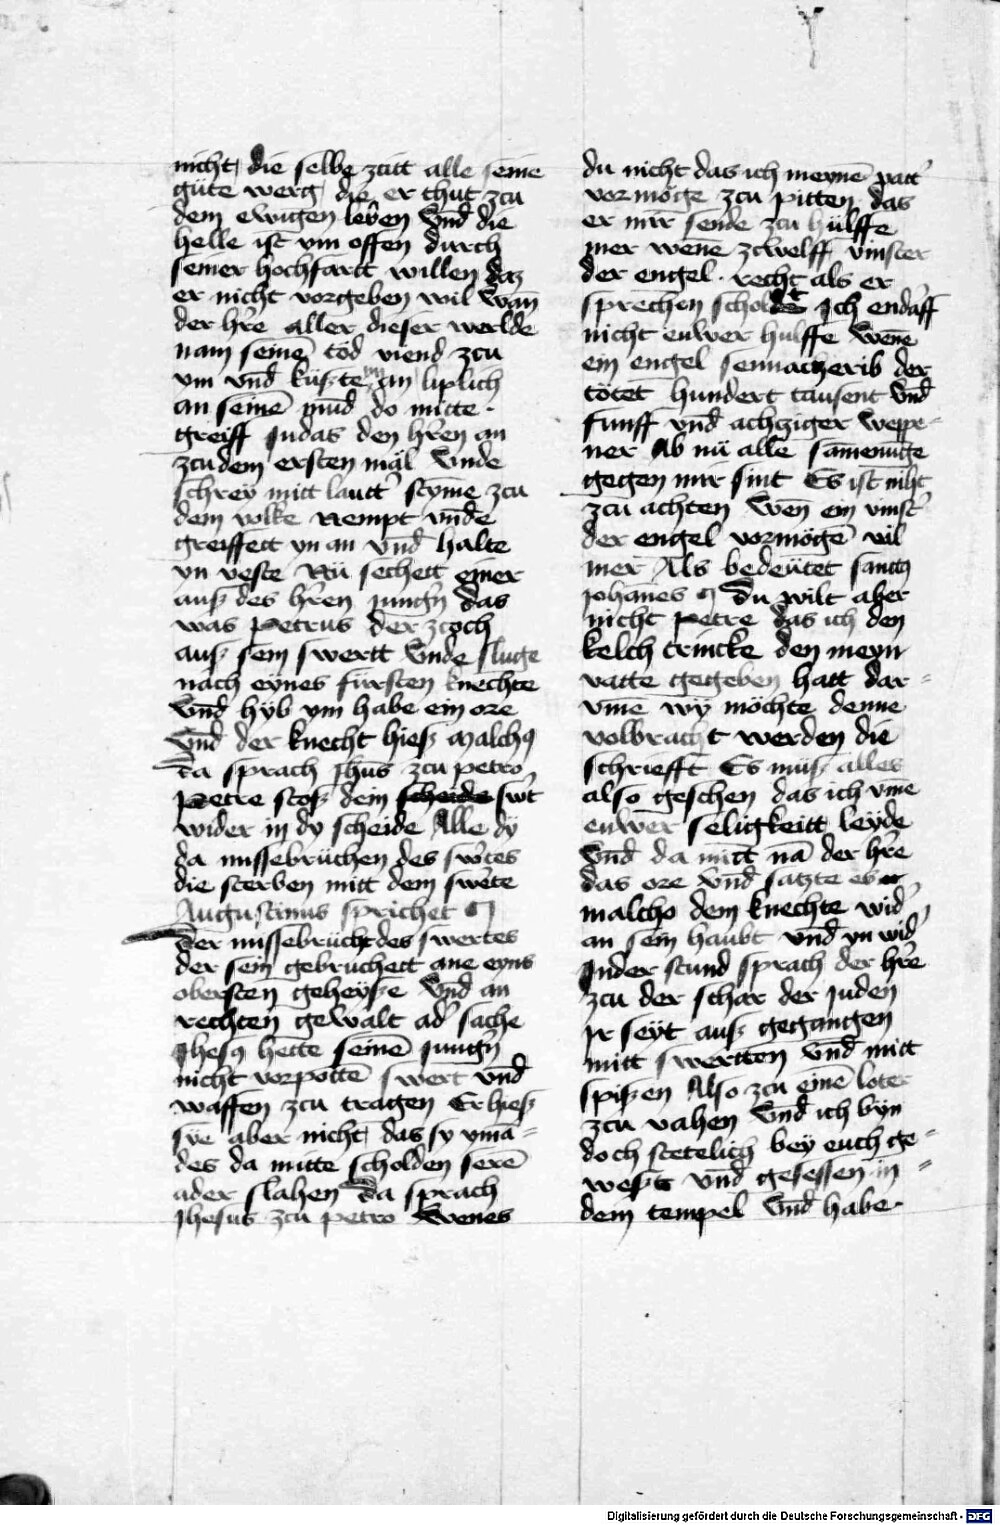 nicht die selbe zcitt alle seine
güte werg die er thut zcu
dem ewigen leben vnd die
helle ist vm offen durch
seiner hochfartt willen daz
er nicht vorgeben wil wan̄
der hr̄e aller dieser werlde
nam seinē töd viend zcu
vm vnd küste yn an liplich
an seinē mūd do mitte
greiff Judas den hr̄en an
zcu dem ersten mäl vnde
schrey mitt lautt' stym̄e zcu
dem volke Nempt vnde
greiffett yn an vnd halte
yn veste Nü sechett einer
auß des hr̄en jungn̄ das
was Petrus der zcoch
auß sein swertt vnde sluge
nach eynes fürsten knechte
vnd hyb ym habe ein ore
vnd der knecht hieß Malchꝯ
da sprach Jhūs zcu petro
Petre stoß dein scheide sw't
wider in dy scheide Alle dy
da missebrüchen des sw'tes
die sterben mitt dem sw'te
Augustinus sprichet
Der missebrücht des swertes
der sein gebruchett ane eyns
obersten geheyße vnd an
rechten gewalt ad' sache
Jhesꝯ hette seinē jungn̄
nicht vorpottē swert vnd
waffen zcu tragen Er hieß
sye aber nicht das sy ymā=
des da mitte scholden serē
ader slahen Da sprach
Jhesus zcu petro Wenes
du nicht das ich meynē vatt'
vormöge zcu pitten das
er mir sende zcu hülffe
mer wene zcwelff vinster
der engel recht als er
sprechen scholdt Ich endäff
nicht euwer hulffe Wēne
ein engel sennacherib der
tötet hundert tausent vnd
funff vnd achziger weppe=
ner Ab nü alle samenutte
gegen mir sint Es ist nicht
zcu achten Wen̄ ein vinst'
der engel vormögē vil
mer Als bedeütet sanctꝯ
Johānes du wilt aber
nicht Petre das ich den
kelch trincke den meyn
vatte gegeben hatt dar=
vmē wy möchte denne
volbracht werden die
schriefft Es müß alles
also geschen das ich vmē
euwer seligkeitt leyde
vnd da mitt nā der hr̄e
das ore vnd satzte es
malcho dem knechte wid'
an sein haubt vnd yn wid'
In der stund sprach der hr̄e
zcu der schar der juden
Jr seyt auß gegangen
mitt swertten vnd mitt
spißen Also zcu einē loter
zcu vahen vnd ich byn
doch stetelich bey euch ge=
west vnd gesessen in=
dem tempel vnd habe
Digitalisierung gefördert durch die Deutsche Forschungsgemeinschaft - DFG